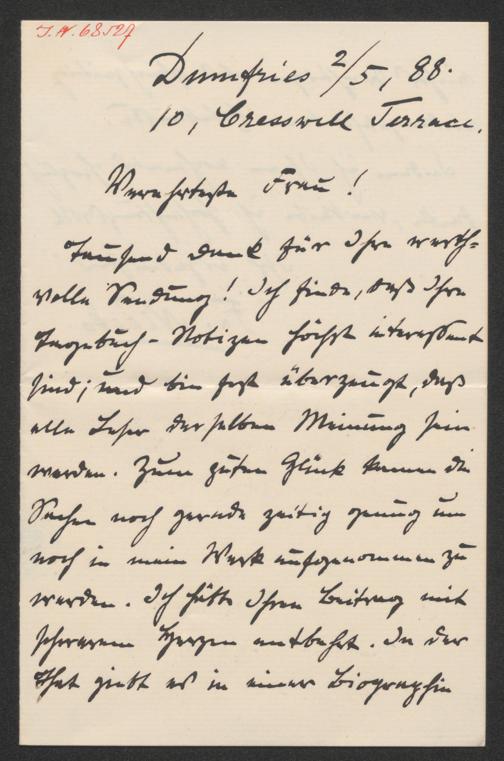 J. N. 68527
Dumfries 2/5, 88.
10, Cresswell Terrace.
Verehrteste Frau!
Tausend Dank für Ihre werth-
volle Sendung! Ich finde, daß Ihre
Tagebuch-Notizen höchst interessant
sind; und bin fest überzeugt, daß
alle Leser derselben Meinung sein
werden. Zum guten Glück kamen die
Sachen noch gerade zeitig genug um
noch in mein Werk aufgenommen zu
werden. Ich hätte Ihren Beitrag mit
schwerem Herzen entbehrt. In der
That giebt es in einer Biographie